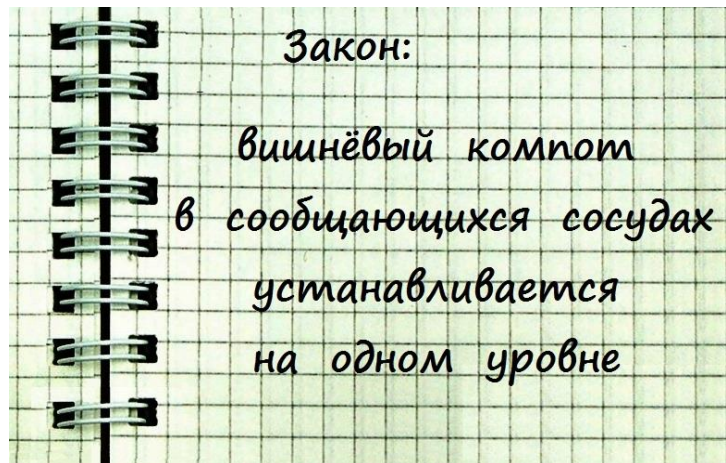 Закон:
вишнёвый компот
в сообщающихся сосудах
устанавливается
на одном уровне